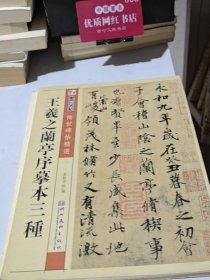 优质网红书店
永和九年歲在癸丑暮春之初會
于會稽山陰之蘭亭脩稧事
也羣賢畢至少長咸集此地
有崇山峻領茂林脩竹又有清流激
傳世碑帖精選
王羲之蘭亭序摹本三種